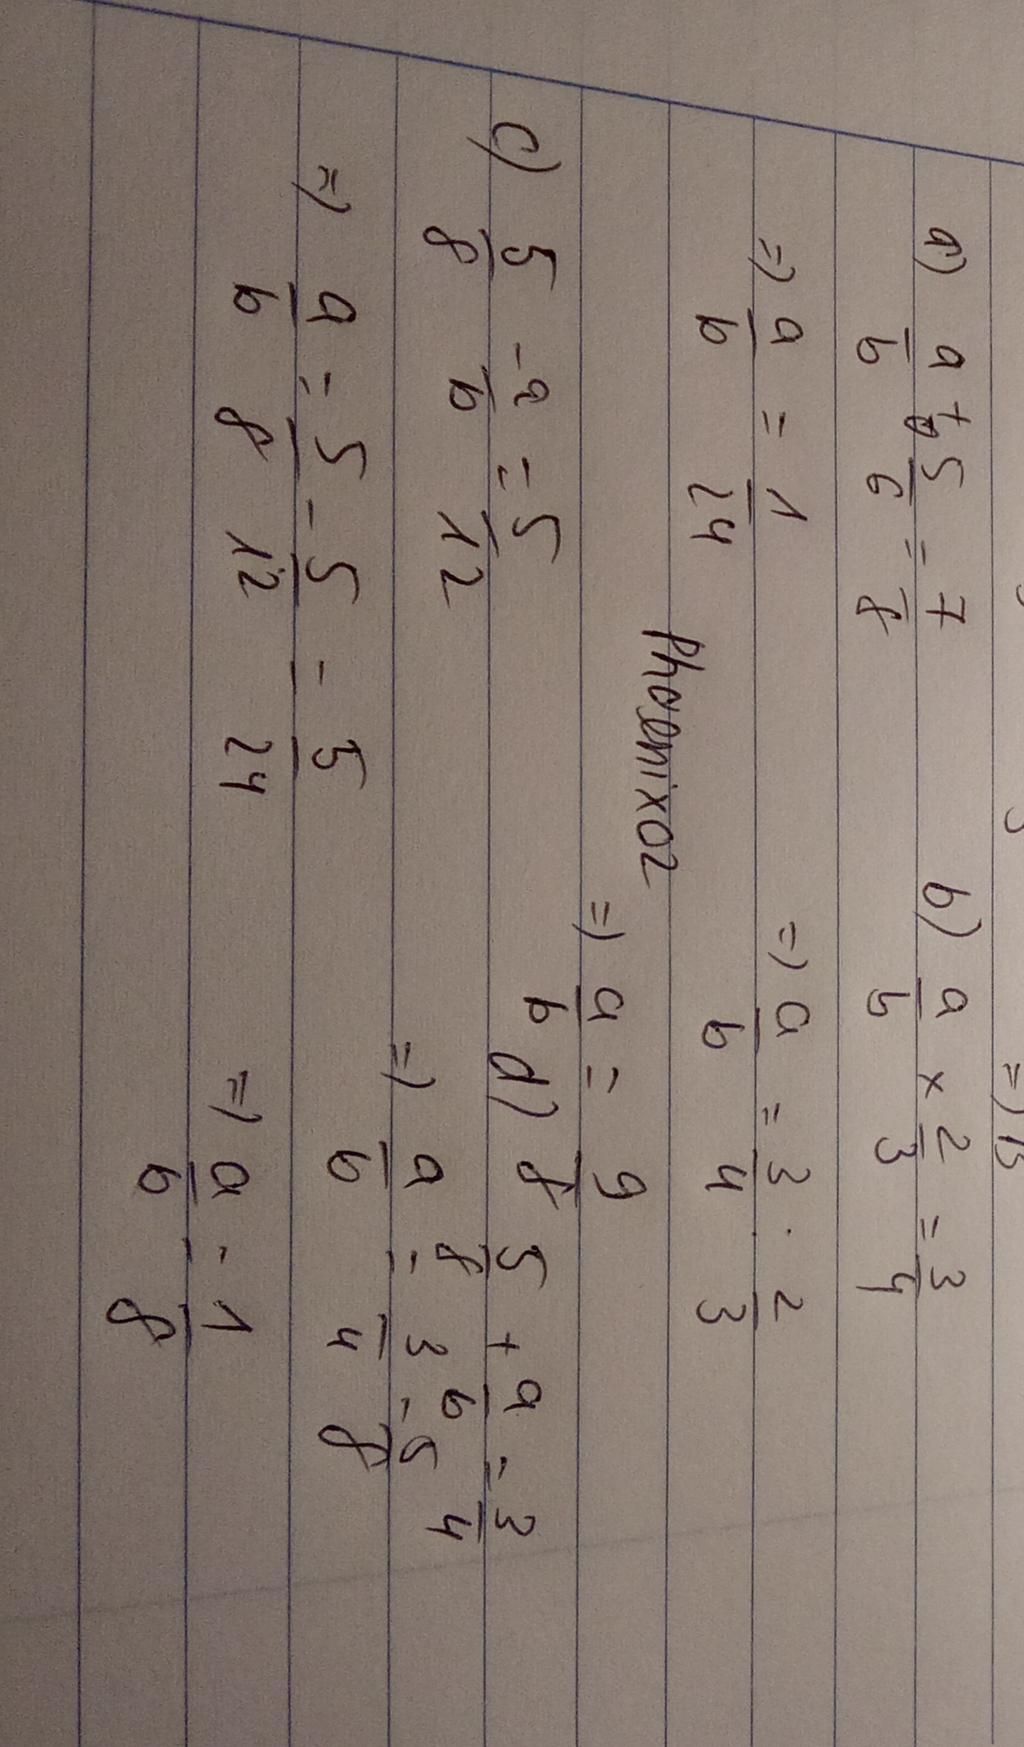 =) B
a) a/b + 5/6 = 7/8
=) a/b = 1/24
b) a/b × 2/3 = 3/4
=) a/b = 3/4 . 2/3
=) a/b = 9/8
Phoenix02
c) 5/8 - a/b = 5/12
=) a/b = 5/8 - 5/12 = 5/24
d) 5/8 + a/b = 3/4
=) a/b = 3/4 - 5/8
=) a/b = 1/8